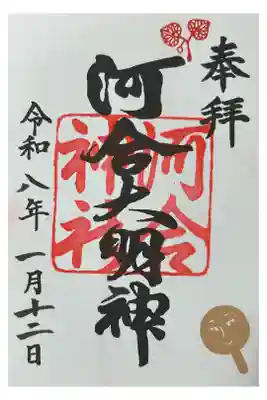 奉拝
河合大明神
河合神社
令和八年 一月十二日